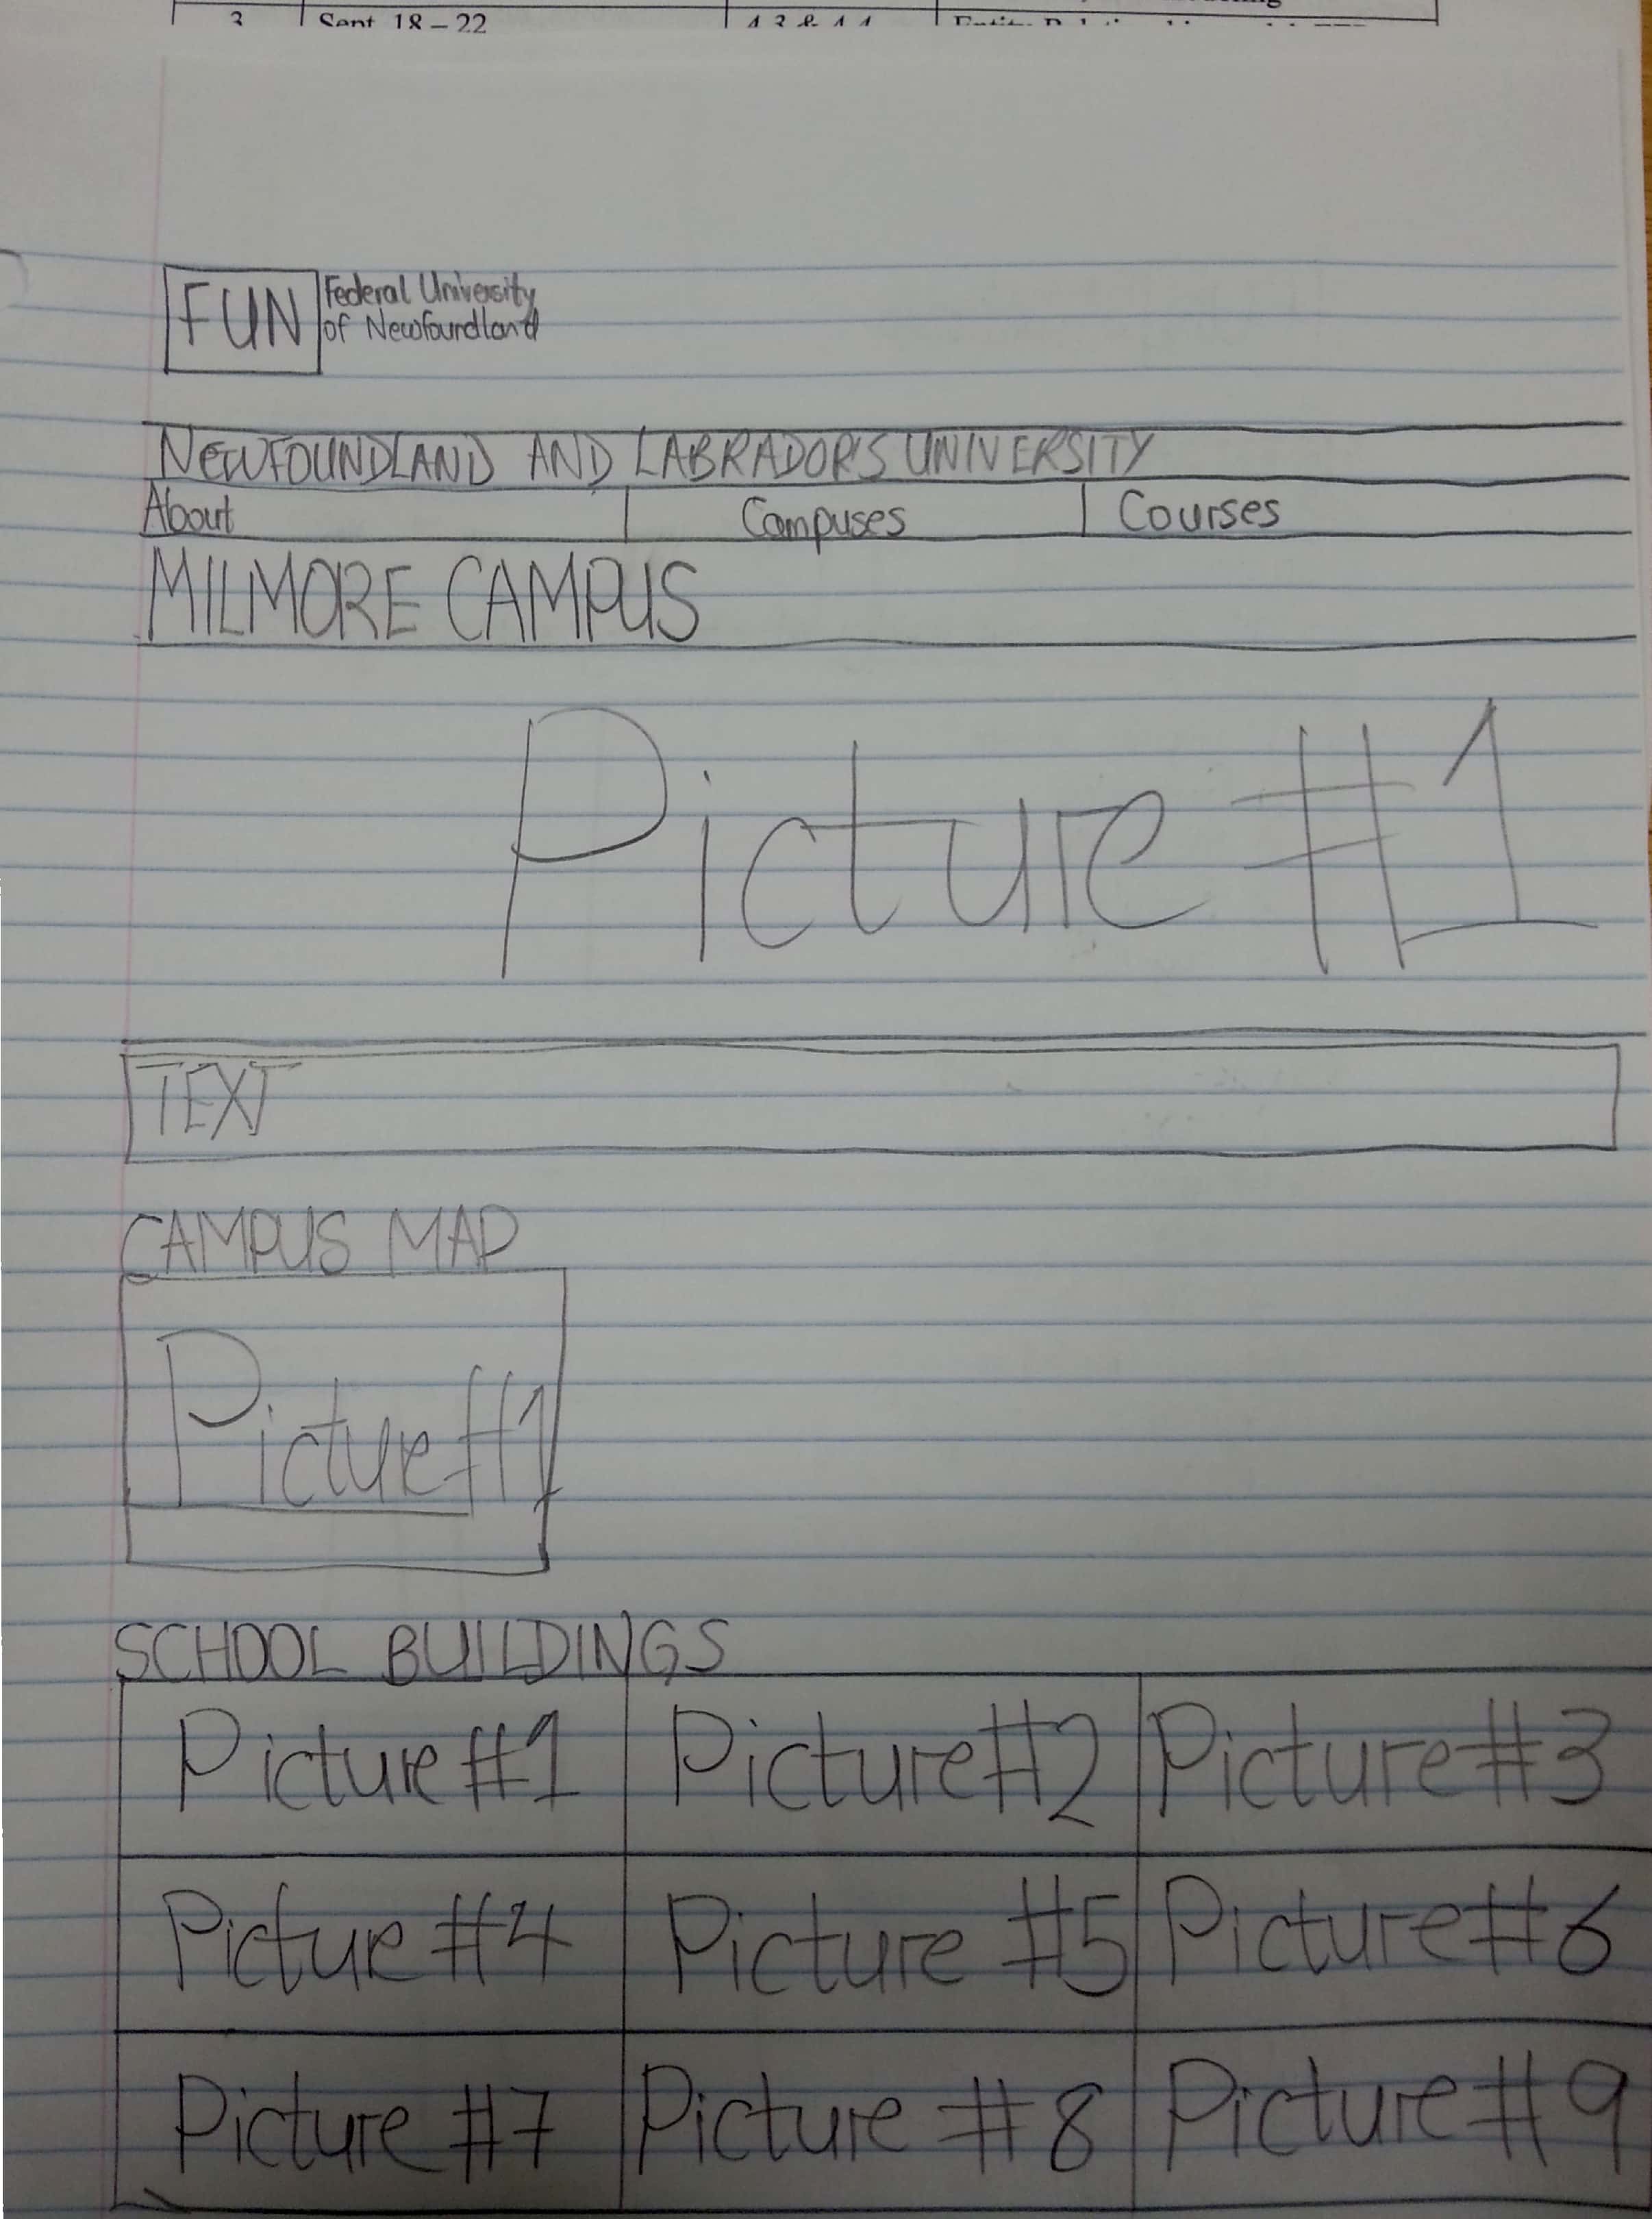 3 Sept. 18 – 22
FUN Federal University
of Newfoundland
NEWFOUNDLAND AND LABRADOR'S UNIVERSITY
About Campuses Courses
MILMORE CAMPUS
Picture #1
TEXT
CAMPUS MAP
Picture #1
SCHOOL BUILDINGS
Picture #1 Picture #2 Picture #3
Pictue #4 Picture #5 Picture #6
Picture #7 Picture #8 Picture #9